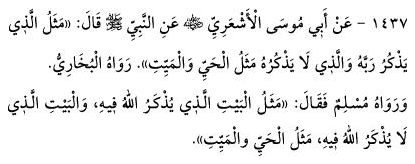 ١٤٣٧ - عَنْ أَبِي مُوسَى الْأَشْعَرِيِّ ﷺ عَنِ النَّبِيِّ ﷺ قَالَ: «مَثَلُ الَّذِي
يَذْكُرُ رَبَّهُ وَالَّذِي لَا يَذْكُرُهُ مَثَلُ الْحَيِّ وَالْمَيِّتِ». رَوَاهُ الْبُخَارِيُّ.
وَرَوَاهُ مُسْلِمٌ فَقَالَ: «مَثَلُ الْبَيْتِ الَّذِي يُذْكَرُ اللهُ فِيهِ، وَالْبَيْتِ الَّذِي
لَا يُذْكَرُ اللهُ فِيهِ، مَثَلُ الْحَيِّ والْمَيِّتِ».